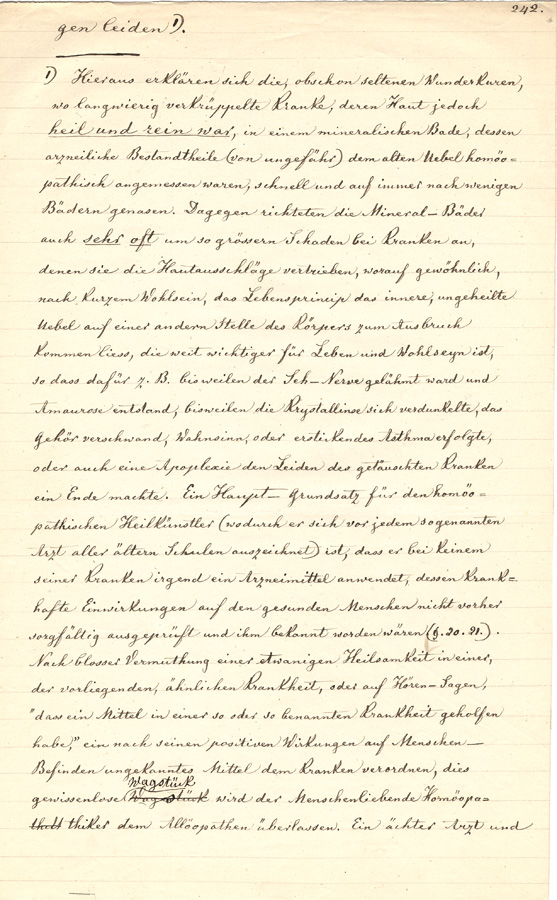 242.
gen leiden 1).
1) Hieraus erklären sich die, obschon seltenen Wunderkuren,
wo langwierig verkrüppelte Kranke, deren Haut jedoch
heil und rein war, in einem mineralischen Bade, dessen
arzneiliche Bestandtheile (von ungefähr) dem alten Uebel homöo=
pathisch angemessen waren, schnell und auf immer nach wenigen
Bädern genasen. Dagegen richteten die Mineral-Bäder
auch sehr oft um so grössern Schaden bei Kranken an,
denen sie die Hautausschläge vertrieben, worauf gewöhnlich,
nach kurzem Wohlsein, das Lebensprincip das innere, ungeheilte
Uebel auf einer andern Stelle des Körpers zum Ausbruch
kommen liess, die weit wichtiger für Leben und Wohlseyn ist,
so dass dafür z. B. bisweilen der Seh-Nerve gelähmt ward und
Amaurose entstand, bisweilen die Krystallinse sich verdunkelte, das
Gehör verschwand, Wahnsinn, oder erstickendes Asthma erfolgte,
oder auch eine Apoplexie den Leiden des getäuschten Kranken
ein Ende machte. Ein Haupt-Grundsatz für den homöo=
pathischen Heilkünstler (wodurch er sich vor jedem sogenannten
Arzt aller ältern Schulen auszeichnet) ist, dass er bei keinem
seiner Kranken irgend ein Arzneimittel anwendet, dessen krank=
hafte Einwirkungen auf den gesunden Menschen nicht vorher
sorgfältig ausgeprüft und ihm bekannt worden wären (§.20.21.).
Nach blosser Vermuthung einer etwanigen Heilsamkeit in einer,
der vorliegenden, ähnlichen Krankheit, oder auf Hören-Sagen,
"dass ein Mittel in einer so oder so benannten Krankheit geholfen
habe," ein nach seinen positiven Wirkungen auf Menschen-
Befinden ungekanntes Mittel dem Kranken verordnen, dies
Wagstück
gewissenlose Wagstück wird der Menschenliebende Homöopa=
thiker dem Allöopathen überlassen. Ein ächter Arzt und